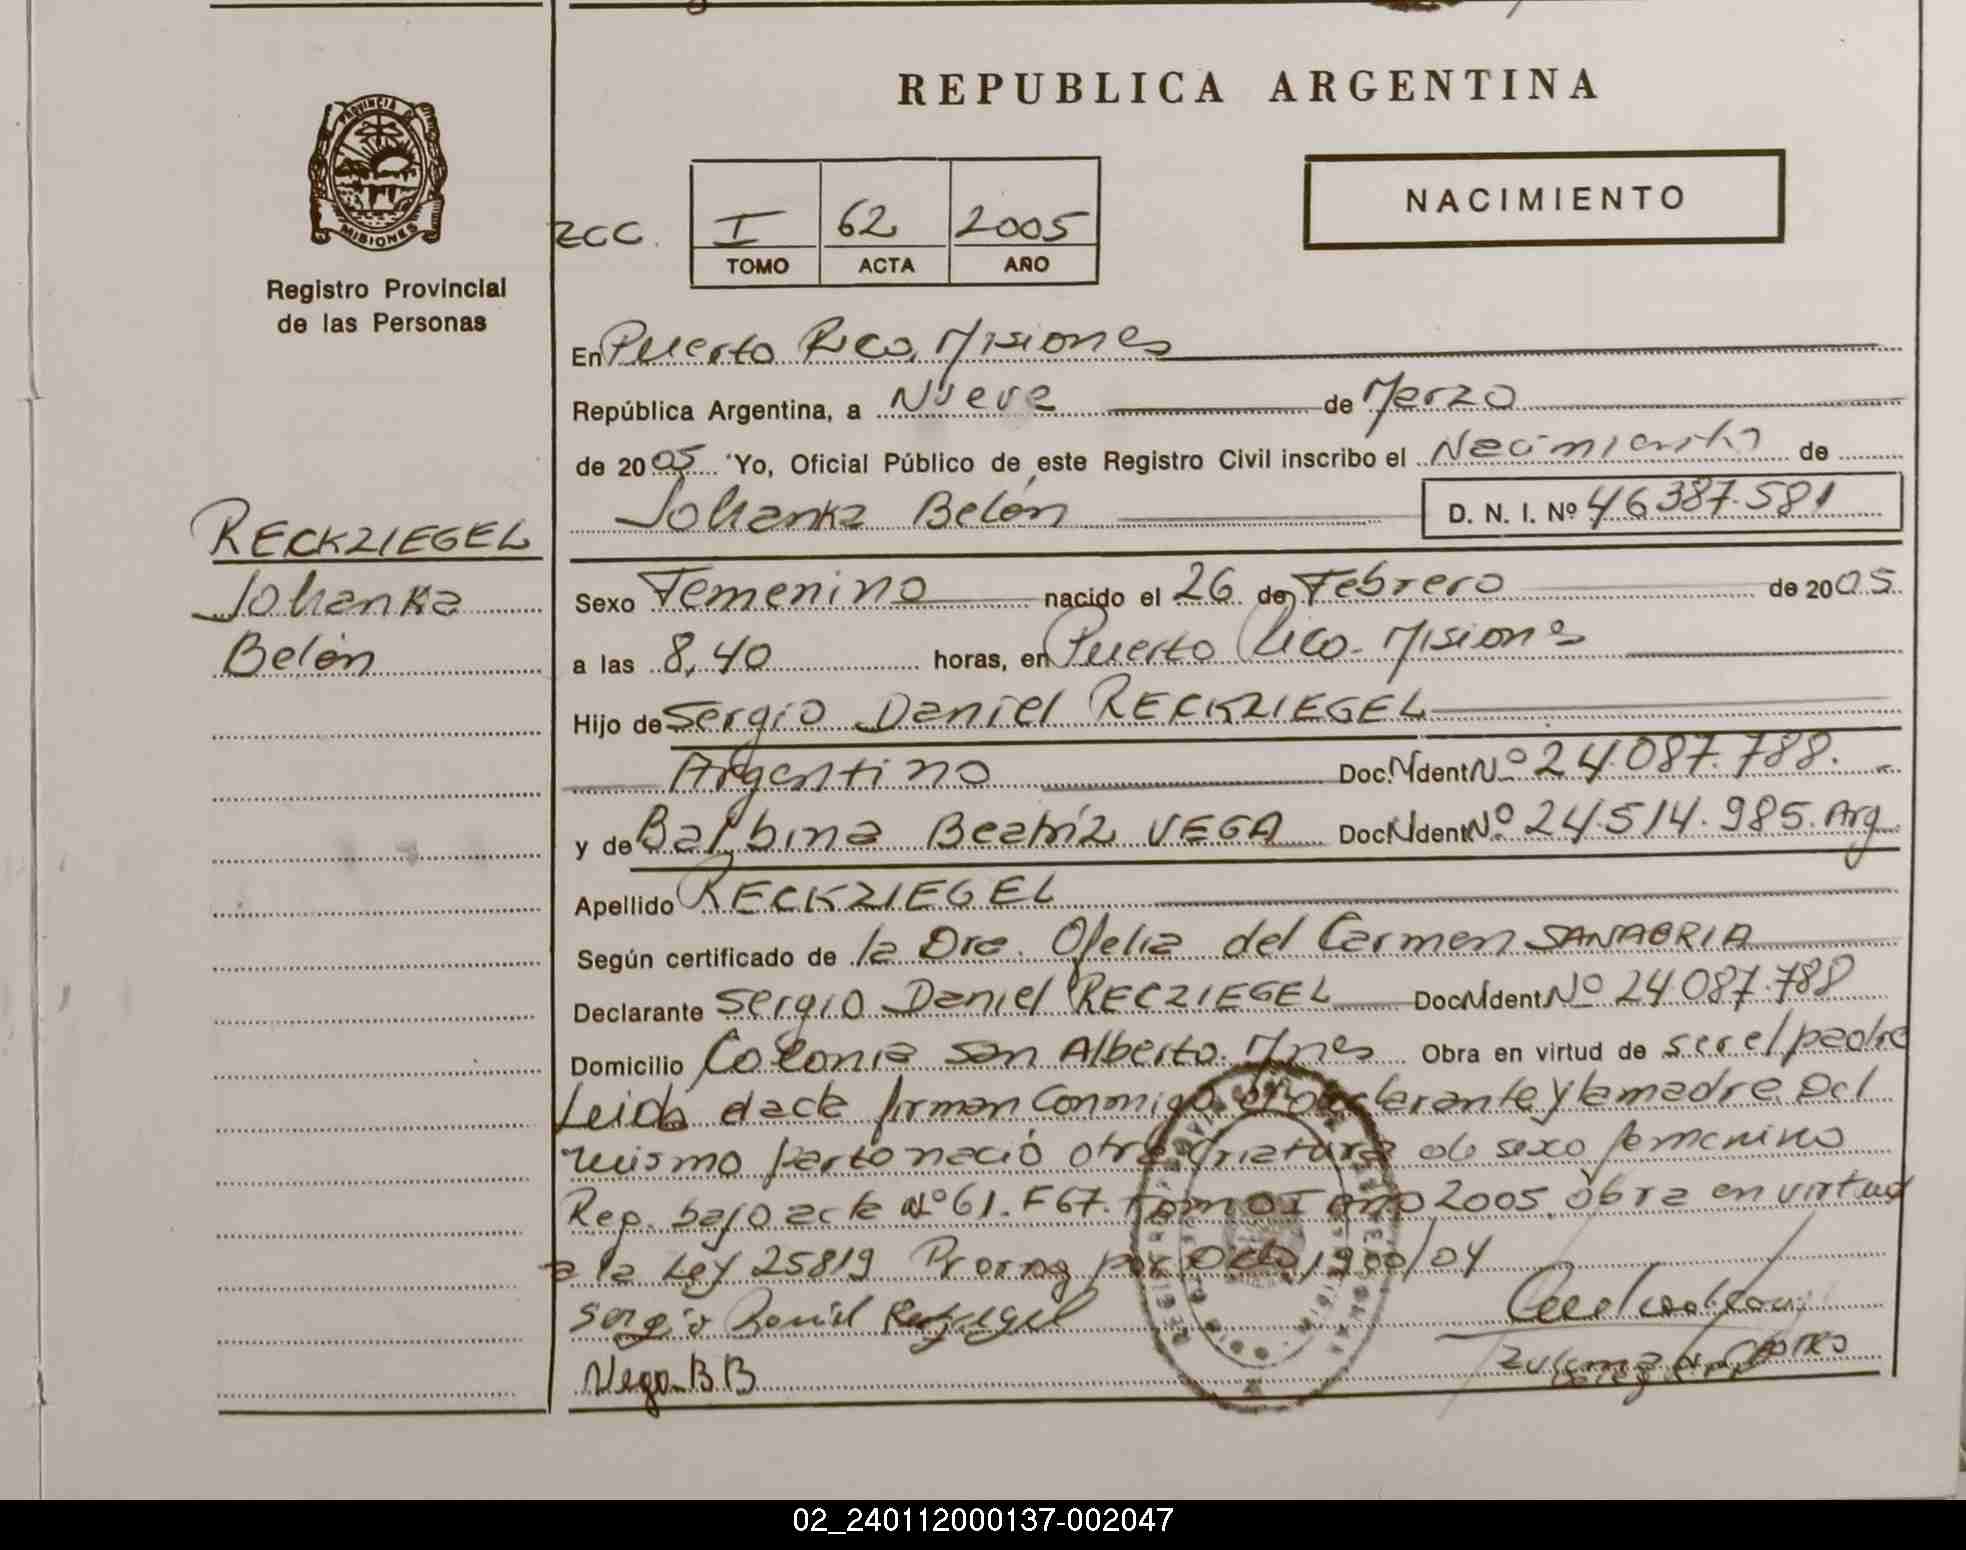 REPUBLICA ARGENTINA
PROVINCIA DE MISIONES
Registro Provincial
de las Personas
NACIMIENTO
I 62 2005
TOMO ACTA AÑO
En Puerto Rico, Misiones
República Argentina, a Nueve de Marzo
de 2005 Yo, Oficial Público de este Registro Civil inscribo el Nacimiento de
Johanka Belén D. N. I. Nº 46387.581
RECKZIEGEL
Johanka
Belén
Sexo Femenino nacido el 26 de Febrero de 2005
a las 8,40 horas, en Puerto Rico. Misiones
Hijo de Sergio Daniel RECKZIEGEL
Argentino Doc. Ident Nº 24.087.788.
y de Balbina Beatríz VEGA Doc Ident Nº 24.514.985. Arg
Apellido RECKZIEGEL
Según certificado de la Dra. Ofelia del Carmen SANABRIA
Declarante Sergio Daniel RECZIEGEL Doc Ident Nº 24.087.788
Domicilio Colonia San Alberto. Mnes Obra en virtud de ser el padre
Leída el acta firman conmigo el declarante y la madre. Del
mismo parto nació otra criatura de sexo femenino
Reg. bajo acta Nº 61. F 67. Tomo I año 2005. Obra en virtud
a la Ley 25819 Prorrog por Dcto 1900/04
Sergio Daniel
Vega B B
02_240112000137-002047